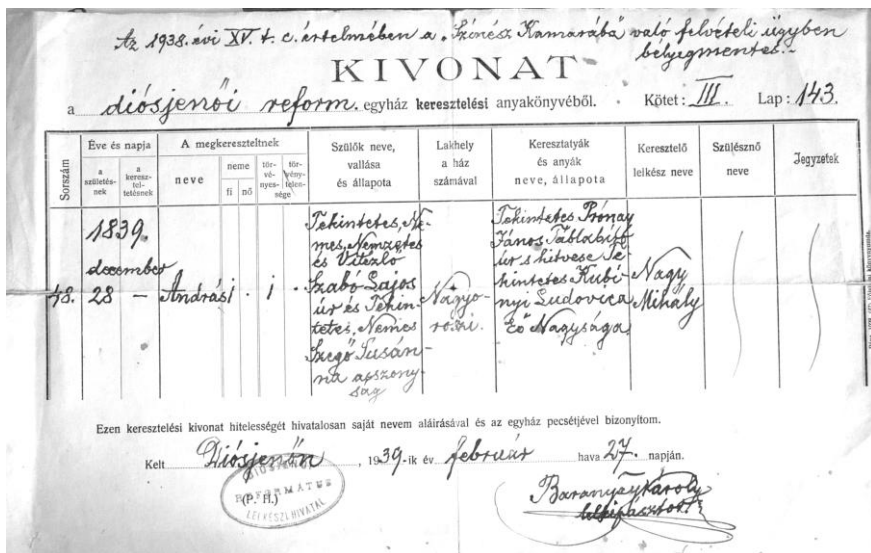 Az 1938. évi XV. t. c. értelmében a „Színész Kamarába" való felvételi ügyben
bélyegmentes.-
KIVONAT
a diósjenői reform. egyház keresztelési anyakönyvéből. Kötet: III. Lap: 143.
Sorszám
Éve és napja
a születés-
nek
a
keresz-
tel-
tetésnek
A megkereszteltnek
neve
neme
fi
nő
tör-
vé-
nyes-
tör-
vény-
telen-
sége
Szülők neve,
vallása
és állapota
Lakhely
a ház
számával
Keresztatyák
és anyák
neve, állapota
Keresztelő
lelkész neve
Szülésznő
neve
Jegyzetek
48.
1839.
december
28 –
András
1 . 1 .
Tekintetes, Ne-
mes, Nemzetes
és Vitézlő
Szabó Lajos
úr és Tekin-
tetes, Nemes
Szegő Susán-
na asszony-
ság
Nagyo-
roszi.
Tekintetes Prónay
János Táblabíró
úr s hitvese Te-
kintetes Kubi-
nyi Ludovica
Eő Nagysága
Nagy
Mihály
Ezen keresztelési kivonat hitelességét hivatalosan saját nevem aláirásával és az egyház pecsétjével bizonyítom.
Kelt Diósjenőn, 1939-ik év február hava 27. napján.
(P. H.)
REFORMÁTUS
LELKÉSZI HIVATAL
Baranyay Károly
lelkipásztor